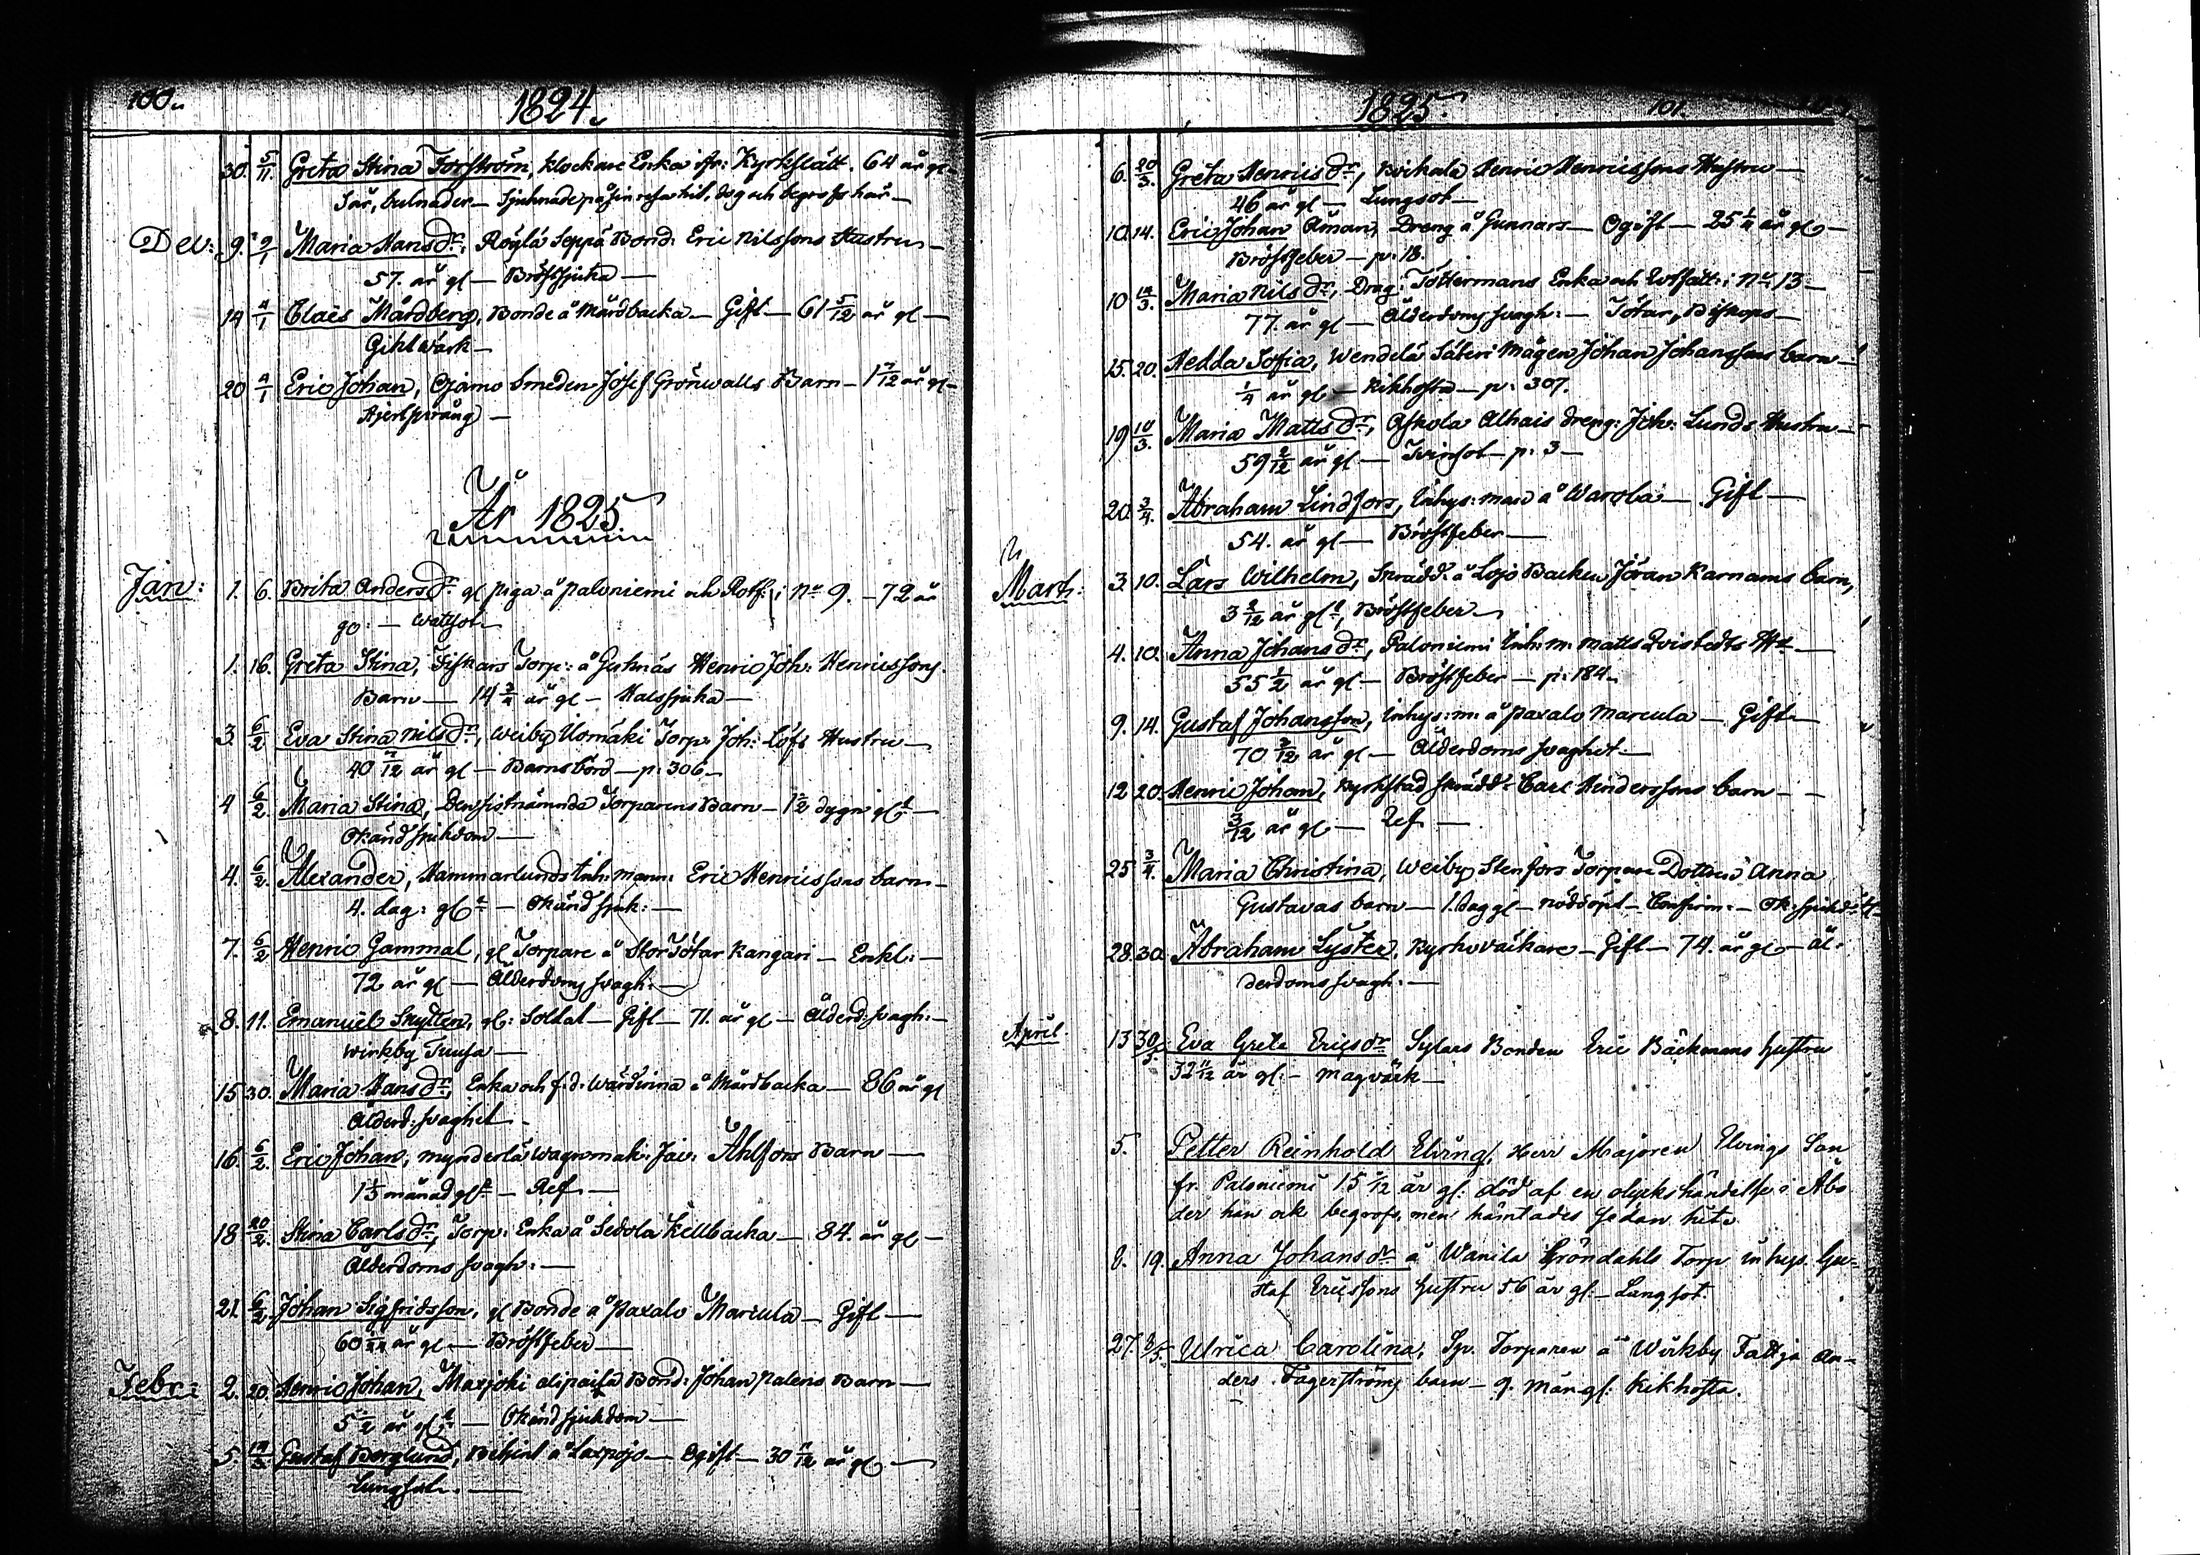 100.
1824.
30. 5/11. Greta Stina Forström, klockare Enka ifr: Kyrkslätt. 64 år gl
Sår, bulnader — Sjuknade på sin resa hit, dog och begrofs här —
Dec: 9. 9/1 Maria Hansdr, Röglä Seppä Bond: Eric Nilssons Hustru —
57. år gl — Bröstsjuka —
14 4/1 Claës Mårdberg, Bonde å Mårdbacka — Gift — 61 5/12 år gl —
Giktvärk —
20 4/1 Eric Johan, Ojamo Smeden Josef Grönwalls Barn — 1 7/12 år gl —
År 1825.
Jan: 1. 6. Brita Andersdr gl piga å Paloniemi och Rotf: i No 9. — 72 år
gl: — Wattsot
1. 16. Greta Stina, Fiskars Torp: å Gutnäs Henric Joh: Henricssons
Barn — 14 3/4 år gl — Halssjuka —
3. 6/2 Eva Stina Nilsdr, Weiby Uomäki Torp: Joh: Löfs Hustru —
40 7/12 år gl — Barnsbörd — p: 306 —
4 6/2. Maria Stina, Densistnämnda Torparens Barn — 1 1/2 dygn glt —
Okänd sjukdom —
4. 6/2. Alexander, Hammarlunds Inh: mann: Eric Henricssons barn —
4. dag: glt — Okänd sjuk: —
7. 6/2 Henric Gammal, gl Torpare å StorTötar Kangari — Enkl: —
72 år gl — Ålderdoms svagh: —
8. 11. Emanuel Skytten, gl: Soldat — Gift — 71. år gl — Ålderd: svagh: —
Wirkby Tuusa —
15 30. Maria Hansdr, Enka och f: d: Wärdinna å Mårdbacka — 86 år gl
Ålderd: svaghet —
16. 6/2. Eric Johan, Mynderlä Wagnmak: Jac: Åhlfors Barn —
1 1/3 månad glt — Ref —
18 20/2. Stina Carlsdr, Torp: Enka å Sedola Källbacka — 84. år gl —
Ålderdoms svagh: —
21. 6/2 Johan Sigfridsson, gl Bonde å Paxalo Marcula — Gift —
60 år gl — Bröstfeber —
Febr: 2. 20. Henric Johan, Maxjoki Bond: Johan Palens Barn —
5 1/2 år glt — Okänd sjukdom —
5. Gustaf Berglund, å Laxpojo — Ogift — 30 år gl —
Lungsot —
1825.
101.
6. 20/3. Greta Henricsdr, Kirkala Henric Henricssons Hustru —
46 år gl — Lungsot —
10. 14. Eric Johan Öman, Dreng å Gunnars — Ogift — 25 1/4 år gl —
Bröstfeber — p: 18.
10 14/3. Maria Nilsdr, Drag: Tottermans Enka och Rotfatt: i No 13 —
77. år gl — Ålderdoms svagh: — Tötar, Biskops —
15. 20. Hedda Sofia, Wendelä Säteri Mågen Johan Johanssons barn —
1/4 år gl — Kikhosta — p: 307.
19 10/3. Maria Mattsdr, Oskola Alhais dreng: Joh: Lunds Hustru —
59 2/12 år gl — Tvinsot — p: 3 —
20. 3/4. Abraham Lindfors, Inhys: man å Warola — Gift —
54. år gl — Bröstfeber —
Mart: 3. 10. Lars Wilhelm, Skrädd: å Lojo Backen Jöran Karnams barn,
3 2/12 år glt, Bröstfeber —
4. 10. Anna Johansdr, Paloniemi Inh: m: Matts Qvistedts Hu —
55 1/2 år gl — Bröstfeber — p: 184 —
9. 14. Gustaf Johansson, Inhys: m: å Paxalo Marcula — Gift —
70 3/12 år gl — Ålderdoms svaghet —
12 20. Henric Johan, Kyrkstad skrädd: Carl Hinderssons barn —
3/12 år gl — Ref —
25 3/4. Maria Christina, Weiby Stenfors Torpare Dottren Anna
Gustavas barn — 1. dag gl — nöddöpt — Confirm: — Ok: sjukd:
28. 30. Abraham Lyster, Kyrkoväktare — Gift — 74. år gl — Ål:
derdoms svagh: —
April. 13 30/5 Eva Greta Ericsdr Sylars Bonden Eric Bäckmans hustru
32 11/12 år gl: — Magvärk —
5. Petter Reinhold Elving, Herr Majoren Elvings Son
fr. Paloniemi 15 /12 år gl: död af en olyckshändelse i Åbo
der han ock begrofs, men hämtades sedan hit.
8. 19. Anna Johansdr å Wanila Gröndahls Torp inhys. Gu-
staf Ericssons hustru 56 år gl: — Lungsot.
27. 8/5. Ulrica Carolina, Sp. Torparen å Wirkby Fattja An-
ders Fagerströms barn — 9. mån gl: Kikhosta.